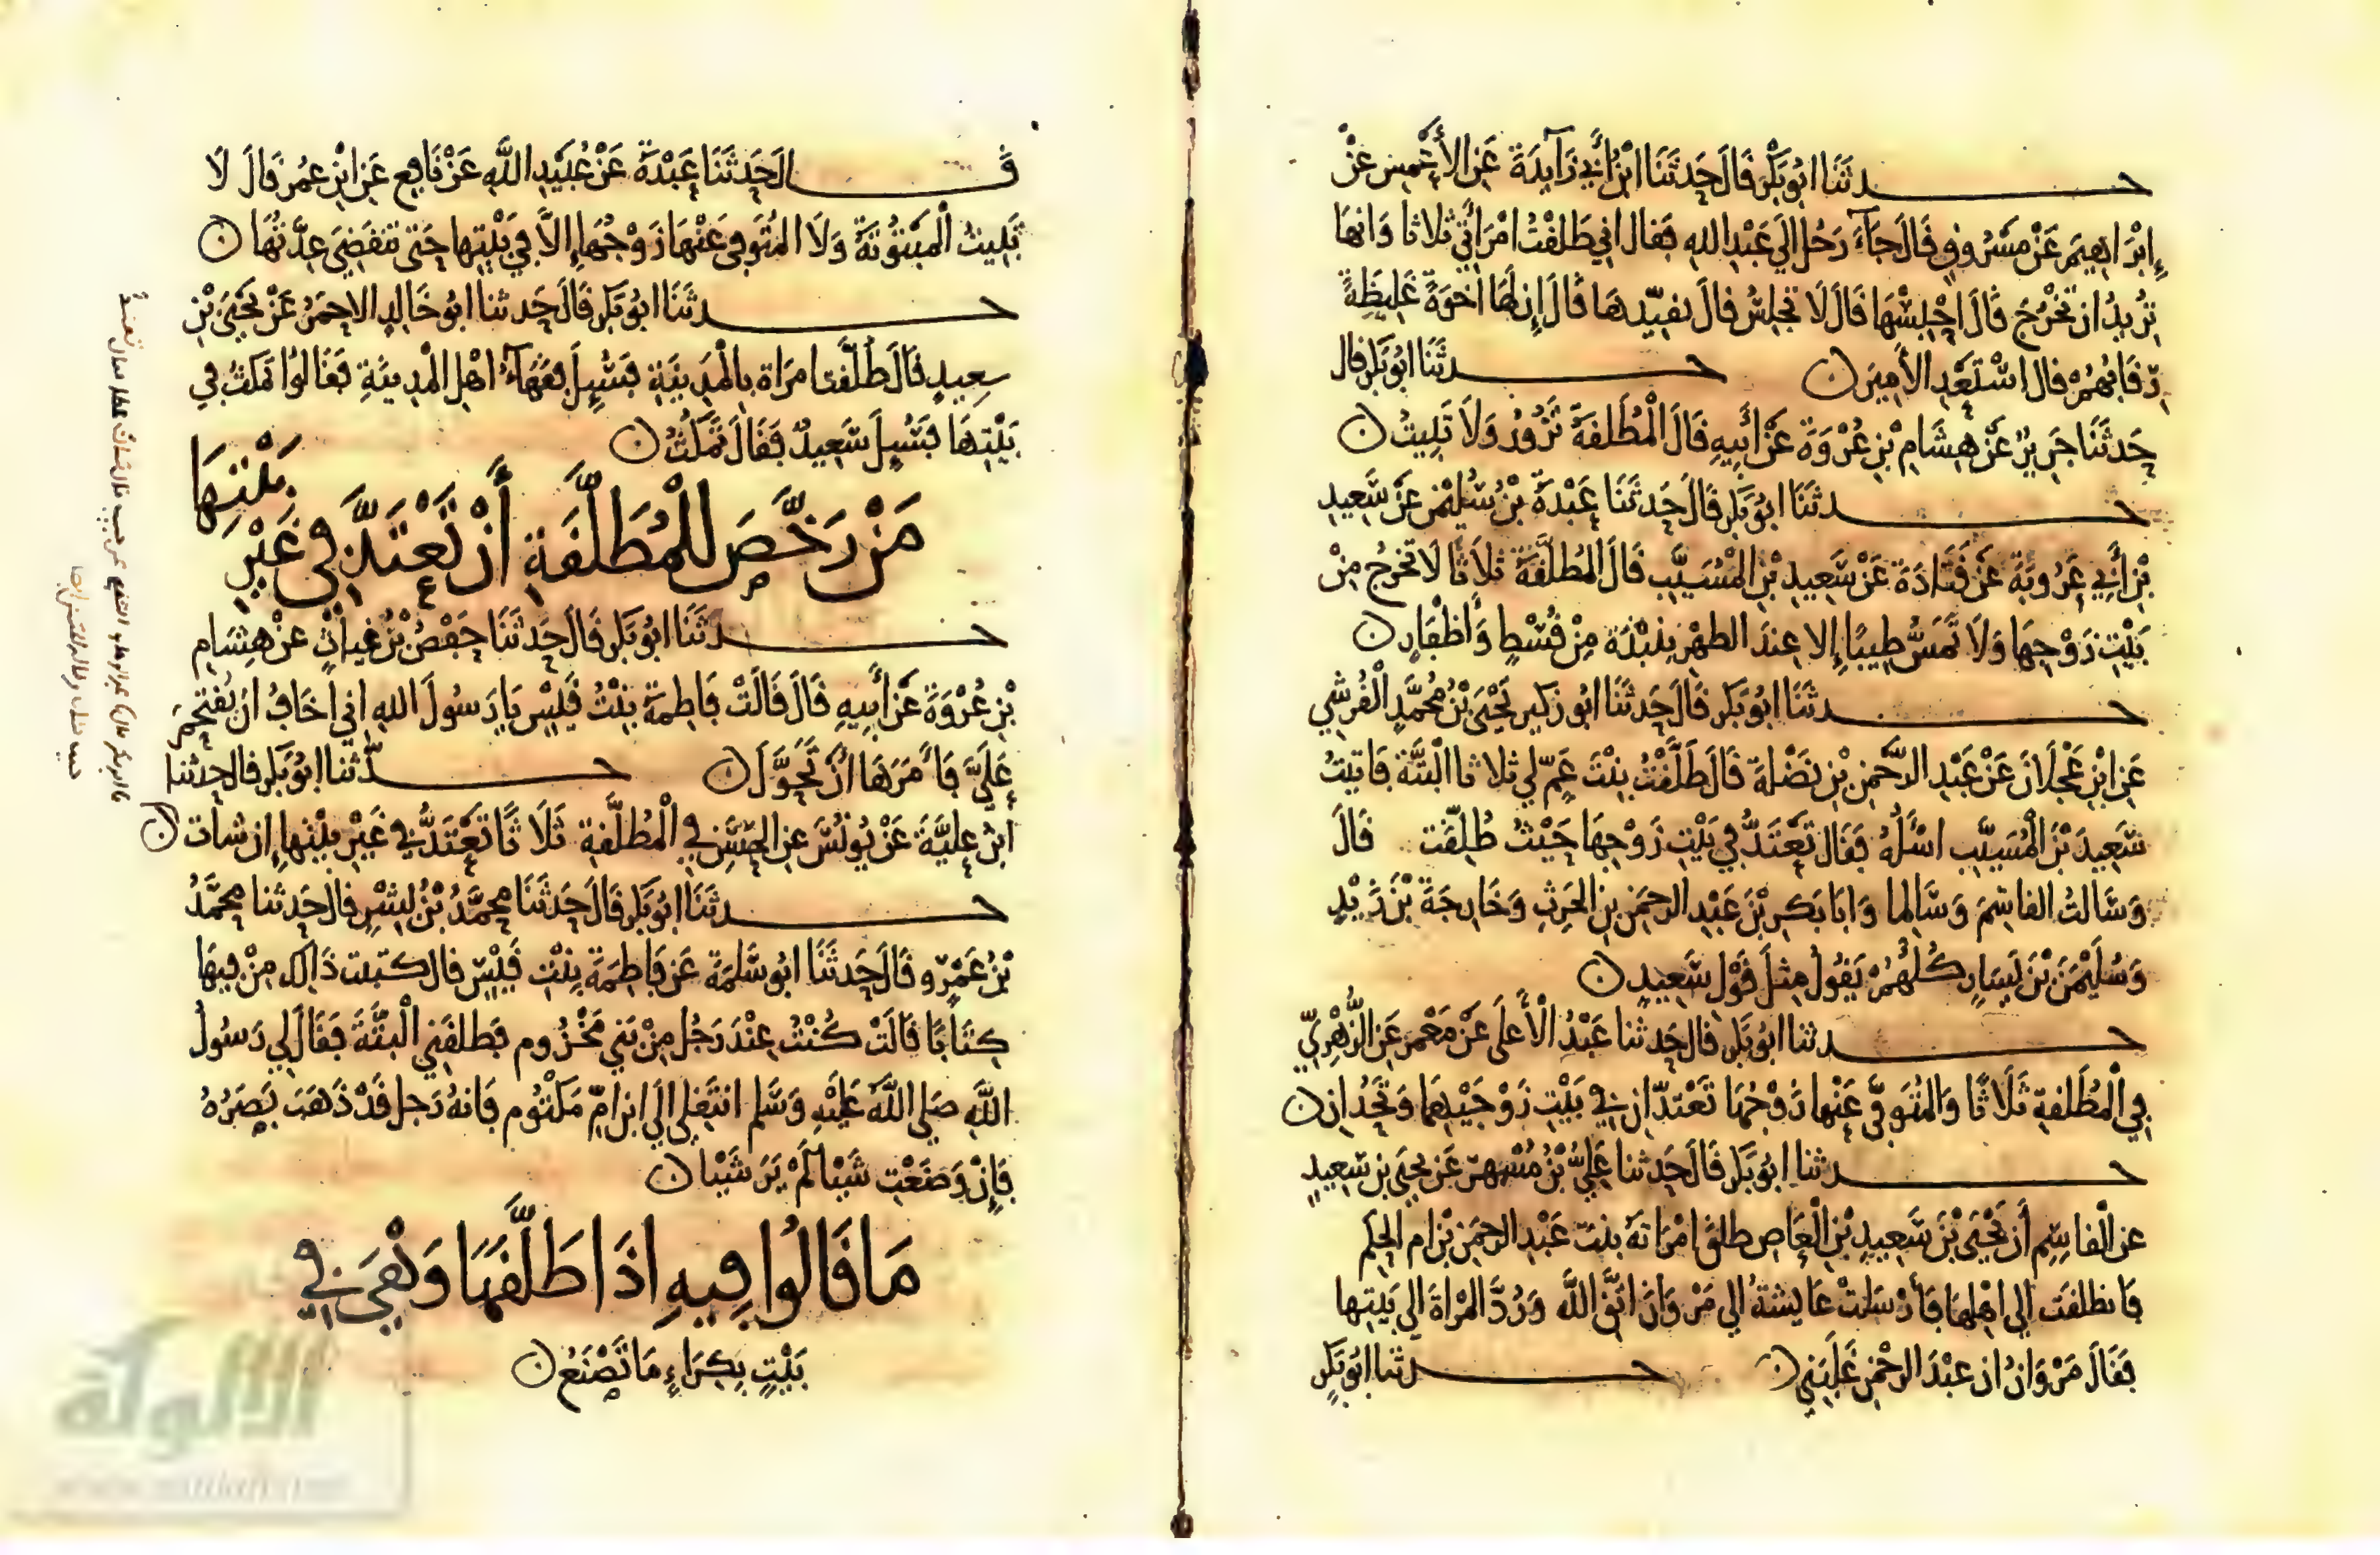 حدثنا ابو بكر قال حدثنا ابن أبي زآيدة عن الأعمش عن
إبرٰاهيم عن مسروق قال جآء رجل الي عبد الله فقال اني طلقت امرأتي ثلاثا وانها
تريد ان تخرج قال احبسها قال لا تجلس قال فقيدها قال إن لها اخوة غليظة
رقابهم قال استعد الأمير ن حدثنا ابو بكر قال
حدثنا جرير عن هشام بن عروة عن أبيه قال المطلقة تزور ولا تبيت ن
حدثنا ابو بكر قال حدثنا عبدة بن سليمن عن سعيد
بن أبي عروبة عن قتادة عن سعيد بن المسيب قال المطلقة ثلاثا لا تخرج من
بيت زوجها ولا تمس طيبا إلا عند الطهر بنبذة من قسط وأظفار ن
حدثنا ابو بكر قال حدثنا ابو زكير يحيى بن محمد القرشي
عن ابن عجلان عن عبد الرحمن بن نضلة قال طلقت بنت عم لي ثلاثا البتة فاتيت
سعيد بن المسيب اسئله فقال تعتد في بيت زوجها حيث طلقت قال
وسالت القاسم وسالما وابا بكر بن عبد الرحمن بن الحرث وخارجة بن زيد
وسليمن بن يسار كلهم يقول مثل قول سعيد ن
حدثنا ابو بكر قال حدثنا عبد الأعلى عن معمر عن الزهري
في المطلقة ثلاثا والمتوفى عنها زوجها تعتدان في بيت زوجيهما وتحدان ن
حدثنا ابو بكر قال حدثنا علي بن مسهر عن يحيى بن سعيد
عن القاسم أن يحيى بن سعيد بن العاص طلق امراته بنت عبد الرحمن بن ام الحكم
فانطلقت الي اهلها فأرسلت عايشة الي مروان اتق الله ورد المراة الي بيتها
فقال مروان ان عبد الرحمن غلبني ن حدثنا ابو بكر
قال حدثنا عبدة عن عبيد الله عن نافع عن ابن عمر قال لا
تبيت المبتوتة ولا المتوفى عنها زوجها إلا في بيتها حتى تنقضي عدتها ن
حدثنا ابو بكر قال حدثنا ابو خالد الاحمر عن يحيى بن
سعيد قال طلقت امراة بالمدينة فسيل فقهآء اهل المدينة فقالوا تمكث في
بيتها فسيل سعيد فقال تمكث ن
من رخص للمطلقة أن تعتد في غير بيتها
حدثنا ابو بكر قال حدثنا حفص بن غياث عن هشام
بن عروة عن أبيه قال قالت فاطمة بنت قيس يا رسول الله اني أخاف ان يقتحم
علي فأمرها أن تحول ن حدثنا ابو بكر قال حدثنا
ابن علية عن يونس عن الحسن في المطلقة ثلاثا تعتد في غير بيتها إن شات ن
حدثنا ابو بكر قال حدثنا محمد بن بشر قال حدثنا محمد
بن عمرو قال حدثنا ابو سلمة عن فاطمة بنت قيس قال كتبت ذاك من فيها
كتابا قالت كنت عند رجل من بني مخزوم فطلقني البتة فقال لي رسول
الله صلى الله عليه وسلم انتقلي الي ابن ام مكتوم فانه رجل قد ذهب بصره
فإن وضعت شيئا لم ير شيئا ن
ما قالوا فيه اذا طلقها وهي في
بيت بكراء ما تصنع ن
الألوكة